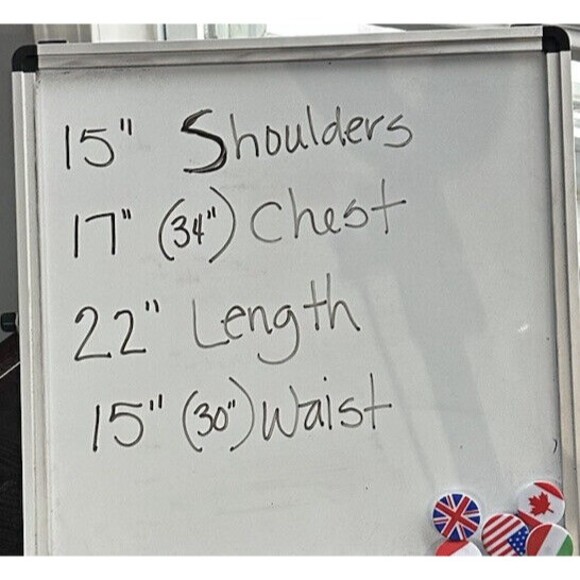 15" Shoulders
17" (34") Chest
22" Length
15" (30") Waist